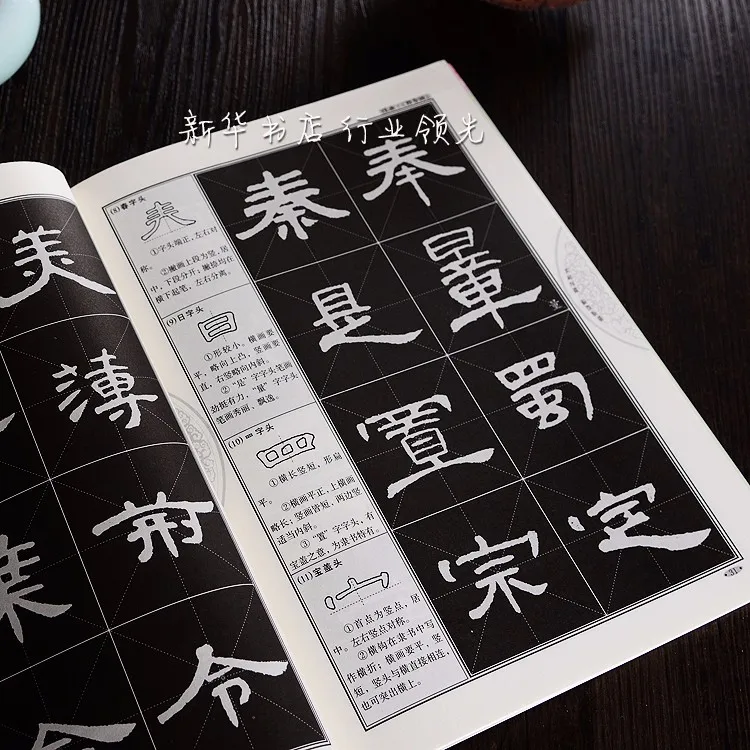 新华书店 行业领先
美
薄
荆
令
(8)春字头
①字头端正,左右对
称。②撇画上段为竖,居
中,下段分开;撇捺均在
横下起笔,左右分离。
秦 奉
(9)日字头
①形较小。横画要
平,略向上凸,竖画要
直,右竖略向内斜。
②“是”字字头笔画
劲挺有力,“量”字字头
笔画秀丽、飘逸。
是 量
量
(10)罒字头
①横长竖短,形扁
平。
②横画平正,上横画
略长;竖画皆短,两边竖
适当内斜。
③“置”字字头,有
宝盖之意,为隶书特有。
置 蜀
(11)宝盖头
①首点为竖点,居
中。左右竖点对称。
②横钩在隶书中写
作横折;横画要平,竖
短,竖头与横直接相连,
也可突出横上。
宗 定
31